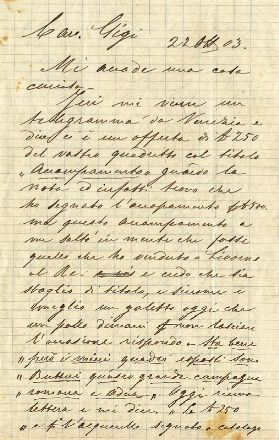 Caro Gigi
22 Ott 03.
Mi accade una cosa
curiosa.
Ieri mi viene un
telegramma da Venezia e
dice c'è un offerta di £ 750
del vostro quadretto col titolo
"Accampamento" guardo la
nota ed infatti trovo che
ho segnato l'accampamento £ 1500
ma questo accampamento a
me saltò in mente che fosse
quello che ho venduto a Livorno
al Re. e credo che sia
sbaglio di titolo, e siccome è
meglio un galletto oggi che
un pollo domani non lasciare
l'occasione rispondo "Sta bene
" però i miei quadri esposti sono
" Butteri quadro grande campagna
" romana e Adua, " Oggi ricevo
lettera e mi dice " le £ 750
" e il acquerello segnato a catalogo